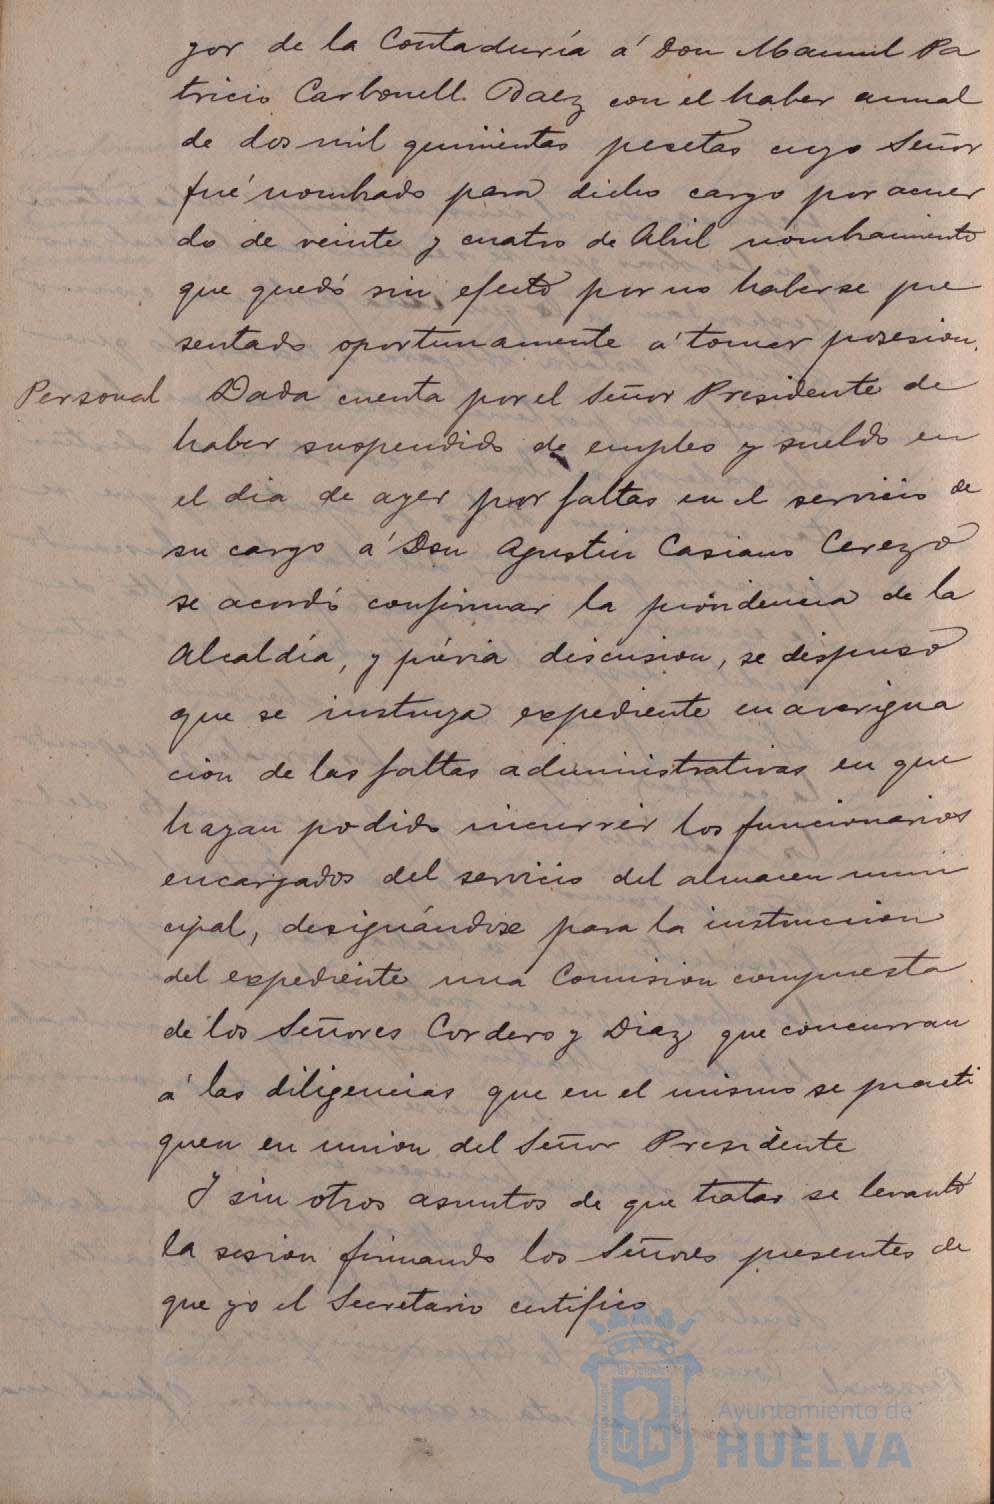 yor de la Contaduría á Don Manuel Pa
tricio Carbonell Baez con el haber anual
de dos mil quinientas pesetas cuyo Señor
fué nombrado para dicho cargo por acuer
do de veinte y cuatro de Abril nombramiento
que quedó sin efecto por no haberse pre
sentado oportunamente á tomar posesion.
Personal Dada cuenta por el Señor Presidente de
haber suspendido de empleo y sueldo en
el dia de ayer por faltas en el servicio de
su cargo á Don Agustin Casiano Cerezo
se acordó confirmar la providencia de la
Alcaldía, y prévia discusion, se dispuso
que se instruya expediente en averigua
cion de las faltas administrativas en que
hayan podido incurrir los funcionarios
encargados del servicio del almacen muni
cipal, designándose para la instruccion
del expediente una Comision compuesta
de los Señores Cordero y Diaz que concurran
á las diligencias que en el mismo se practi
quen en union del Señor Presidente
Y sin otros asuntos de que tratar se levantó
la sesion firmando los Señores presentes de
que yo el Secretario certifico
Ayuntamiento de
HUELVA